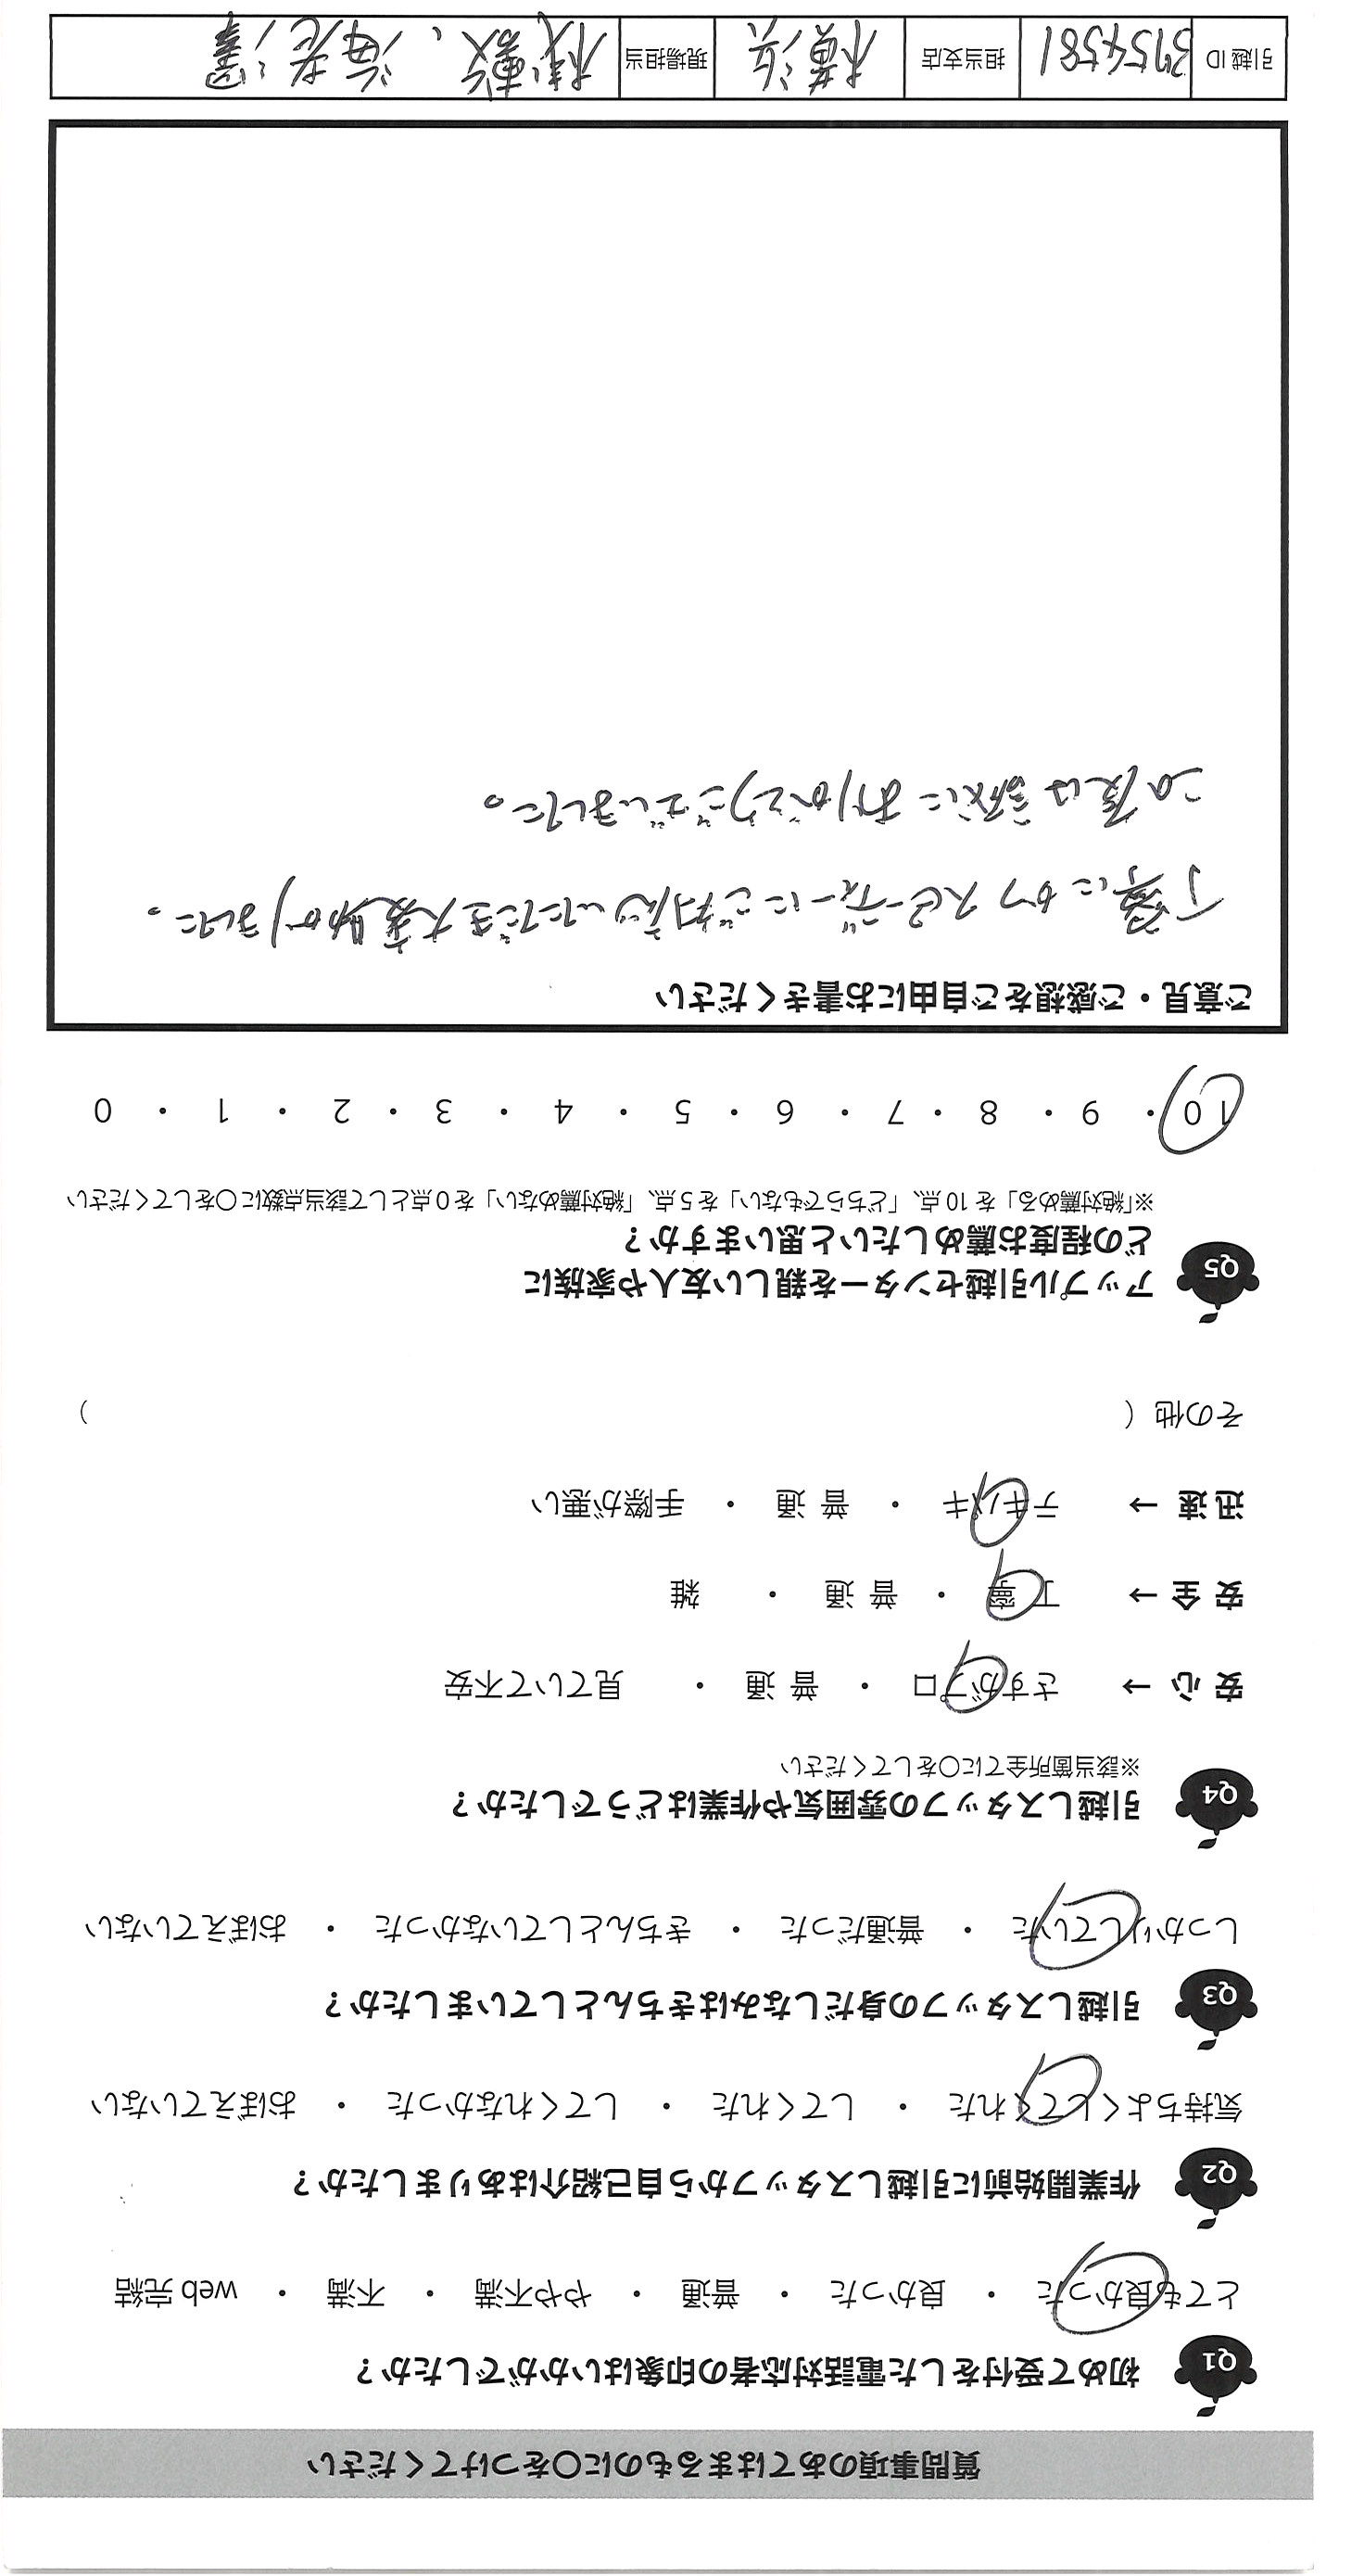 質問事項のあてはまるものに〇をつけてください
Q1 初めて受付をした電話対応者の印象はいかがでしたか?
とても良かった ・ 良かった ・ 普通 ・ やや不満 ・ 不満 ・ web 完結
Q2 作業開始前に引越しスタッフから自己紹介はありましたか?
気持ちよくしてくれた ・ してくれた ・ してくれなかった ・ おぼえていない
Q3 引越しスタッフの身だしなみはきちんとしていましたか?
しっかりしていた ・ 普通だった ・ きちんとしていなかった ・ おぼえていない
Q4 引越しスタッフの雰囲気や作業はどうでしたか?
※該当箇所全てに〇をしてください
安 心 → さすがプロ ・ 普 通 ・ 見ていて不安
安 全 → 丁 寧 ・ 普 通 ・ 雑
迅 速 → テキパキ ・ 普 通 ・ 手際が悪い
その他 ( )
Q5 アップル引越センターを親しい友人や家族に
どの程度お薦めしたいと思いますか?
※「絶対薦める」を 10 点、「どちらでもない」を 5 点、「絶対薦めない」を 0 点として該当点数に〇をしてください
10 ・ 9 ・ 8 ・ 7 ・ 6 ・ 5 ・ 4 ・ 3 ・ 2 ・ 1 ・ 0
ご意見・ご感想をご自由にお書きください
丁寧にかつスピーディーにご対応いただき大変助かりました。
この度は誠にありがとうございました。
引越 ID 3754581 担当支店 横浜 現場担当 、海老澤